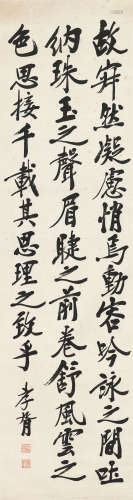 故寂然凝慮悄焉動容吟詠之間吐
納珠玉之聲眉睫之前卷舒風雲之
色思接千載其思理之致乎
李